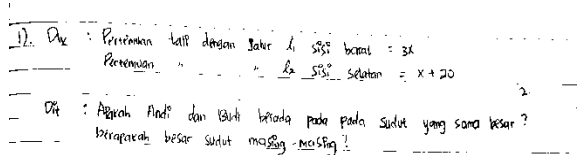 1). Dik : Pertemuan tali dengan Jalur l₁ sisi barat = 3x
Pertemuan " " l₂ sisi selatan = x + 20
2.
Dit : Apakah Andi dan Budi berada pada pada sudut yang sama besar ?
berapakah besar sudut masing-masing !